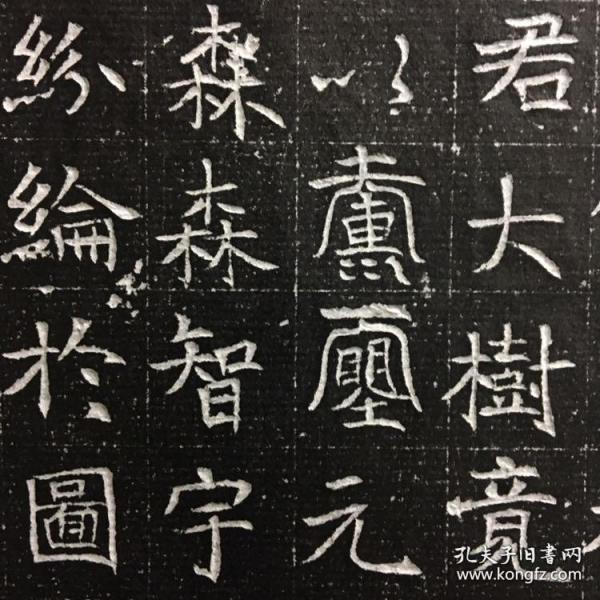 君大樹
以壐元
森森智宇
紛綸於圖
孔夫子旧書网
www.kongfz.com